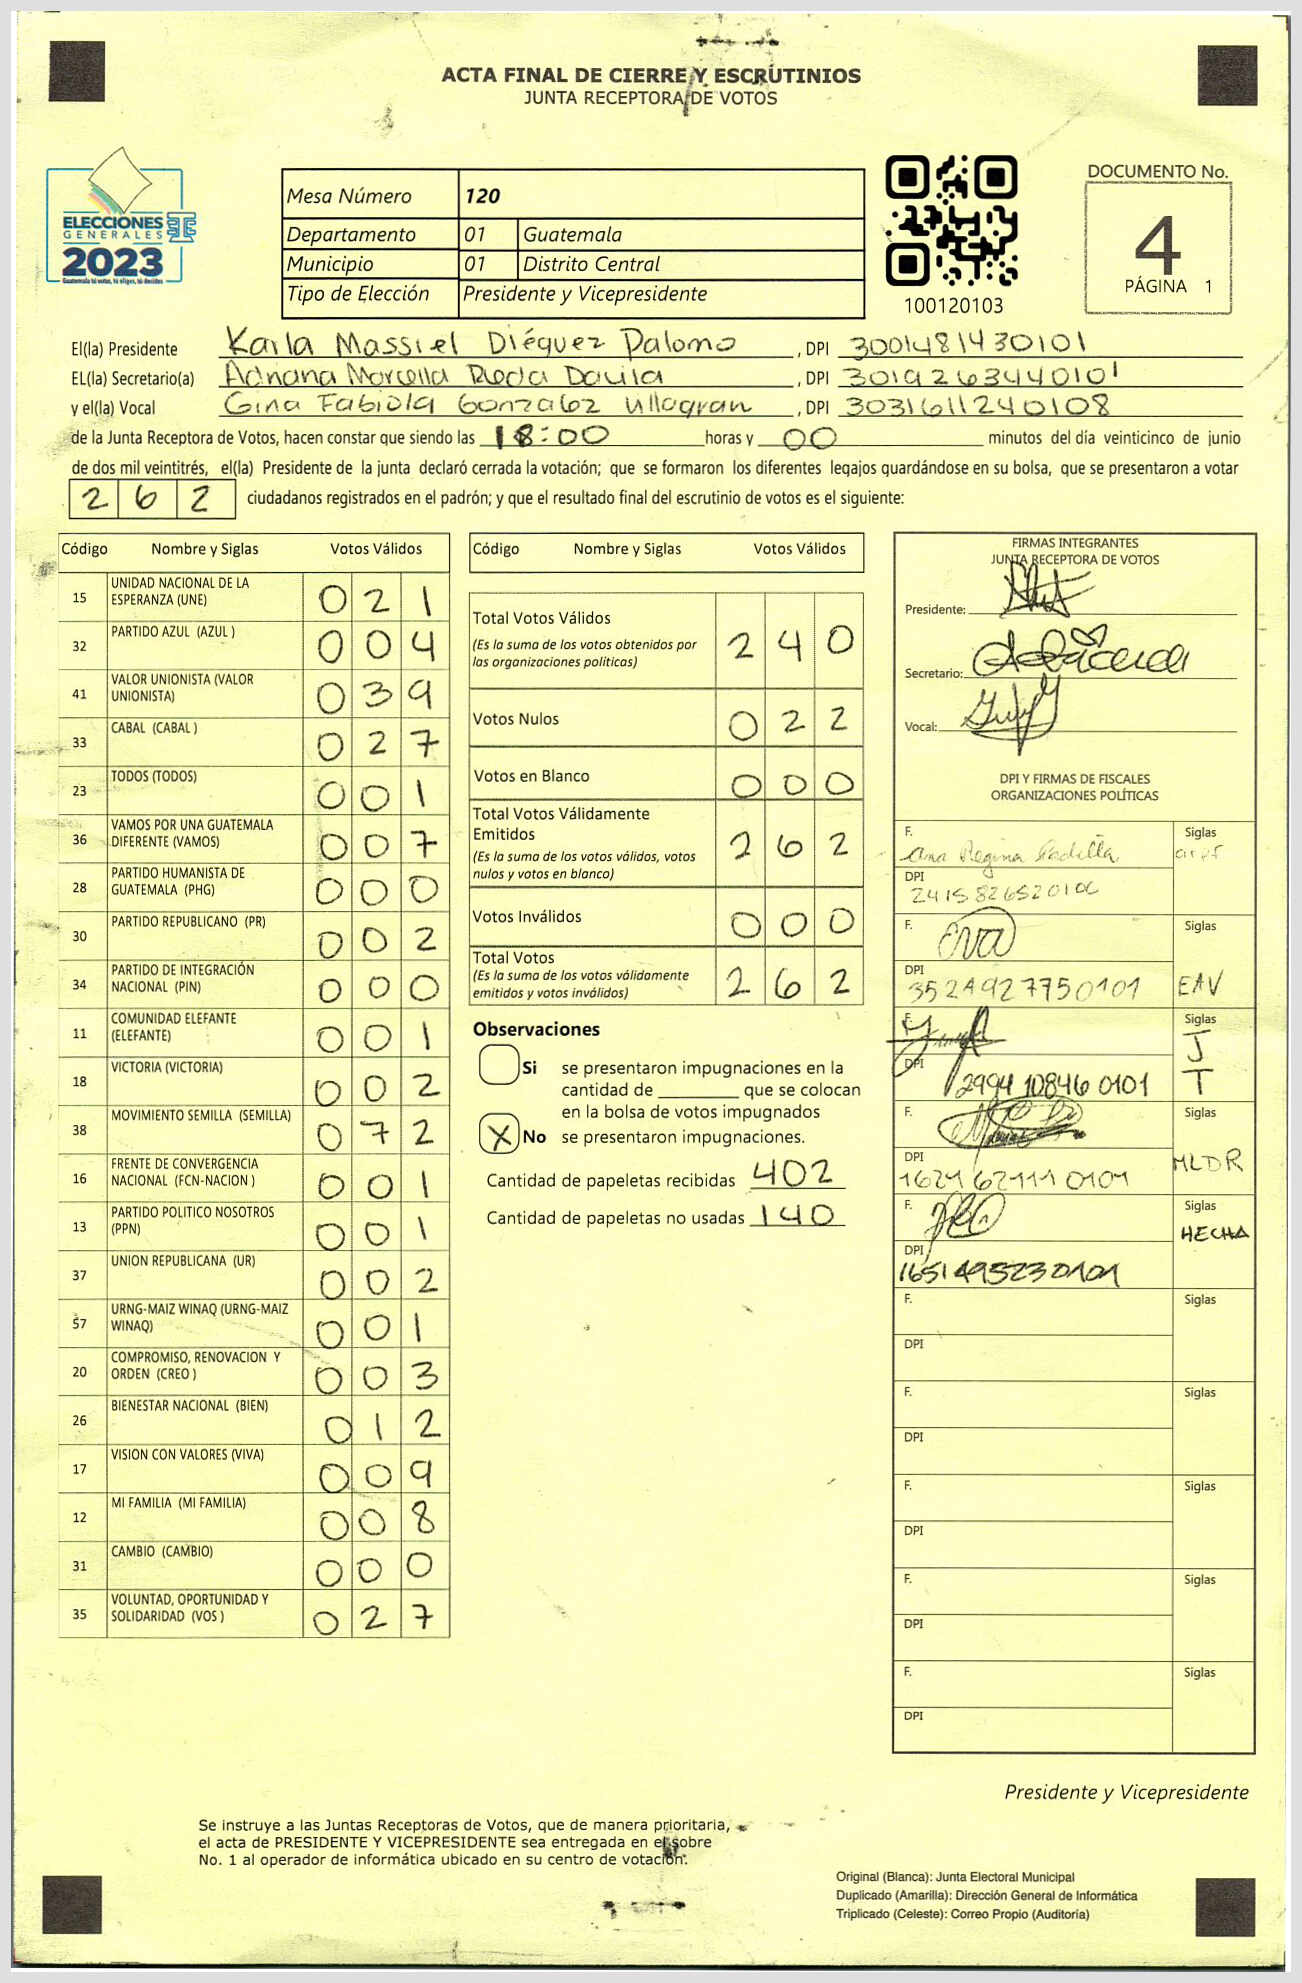 ACTA FINAL DE CIERRE Y ESCRUTINIOS
JUNTA RECEPTORA DE VOTOS
ELECCIONES
GENERALES
2023
Guatemala tú votas, tú eliges, tú decides
Mesa Número 120
Departamento 01 Guatemala
Municipio 01 Distrito Central
Tipo de Elección Presidente y Vicepresidente
100120103
DOCUMENTO No.
4
PÁGINA 1
El(la) Presidente Karla Massiel Diéguez Palomo, DPI 3001481430101
EL(la) Secretario(a) Adriana Marcella, DPI 3019263440101
y el(la) Vocal Gina Fabiola Gonzalez Villagran, DPI 3031611240108
de la Junta Receptora de Votos, hacen constar que siendo las 18:00 horas y 00 minutos del día veinticinco de junio
de dos mil veintitrés, el(la) Presidente de la junta declaró cerrada la votación; que se formaron los diferentes legajos guardándose en su bolsa, que se presentaron a votar
262 ciudadanos registrados en el padrón; y que el resultado final del escrutinio de votos es el siguiente:
Código Nombre y Siglas Votos Válidos
15 UNIDAD NACIONAL DE LA ESPERANZA (UNE) 021
32 PARTIDO AZUL (AZUL ) 004
41 VALOR UNIONISTA (VALOR UNIONISTA) 039
33 CABAL (CABAL ) 027
23 TODOS (TODOS) 001
36 VAMOS POR UNA GUATEMALA DIFERENTE (VAMOS) 007
28 PARTIDO HUMANISTA DE GUATEMALA (PHG) 000
30 PARTIDO REPUBLICANO (PR) 002
34 PARTIDO DE INTEGRACIÓN NACIONAL (PIN) 000
11 COMUNIDAD ELEFANTE (ELEFANTE) 001
18 VICTORIA (VICTORIA) 002
38 MOVIMIENTO SEMILLA (SEMILLA) 072
16 FRENTE DE CONVERGENCIA NACIONAL (FCN-NACION ) 001
13 PARTIDO POLITICO NOSOTROS (PPN) 001
37 UNION REPUBLICANA (UR) 002
57 URNG-MAIZ WINAQ (URNG-MAIZ WINAQ) 001
20 COMPROMISO, RENOVACION Y ORDEN (CREO ) 003
26 BIENESTAR NACIONAL (BIEN) 012
17 VISION CON VALORES (VIVA) 009
12 MI FAMILIA (MI FAMILIA) 008
31 CAMBIO (CAMBIO) 000
35 VOLUNTAD, OPORTUNIDAD Y SOLIDARIDAD (VOS ) 027
Código Nombre y Siglas Votos Válidos
Total Votos Válidos 240
(Es la suma de los votos obtenidos por
las organizaciones políticas)
Votos Nulos 022
Votos en Blanco 000
Total Votos Válidamente
Emitidos 262
(Es la suma de los votos válidos, votos
nulos y votos en blanco)
Votos Inválidos 000
Total Votos 262
(Es la suma de los votos válidamente
emitidos y votos inválidos)
Observaciones
Si se presentaron impugnaciones en la
cantidad de ________ que se colocan
en la bolsa de votos impugnados
X No se presentaron impugnaciones.
Cantidad de papeletas recibidas 402
Cantidad de papeletas no usadas 140
FIRMAS INTEGRANTES
JUNTA RECEPTORA DE VOTOS
Presidente:
Secretario:
Vocal:
DPI Y FIRMAS DE FISCALES
ORGANIZACIONES POLÍTICAS
F. Ana Regina Padilla Siglas
DPI
F. Siglas
DPI 3524927750101 EAV
F. Siglas
J
DPI 2994108460101 T
F. Siglas
DPI 1621621110101 MLDR
F. Siglas
HECHA
DPI 1651495230101
F. Siglas
DPI
F. Siglas
DPI
F. Siglas
DPI
F. Siglas
DPI
F. Siglas
DPI
Presidente y Vicepresidente
Se instruye a las Juntas Receptoras de Votos, que de manera prioritaria,
el acta de PRESIDENTE Y VICEPRESIDENTE sea entregada en el sobre
No. 1 al operador de informática ubicado en su centro de votación.
Original (Blanca): Junta Electoral Municipal
Duplicado (Amarilla): Dirección General de Informática
Triplicado (Celeste): Correo Propio (Auditoría)